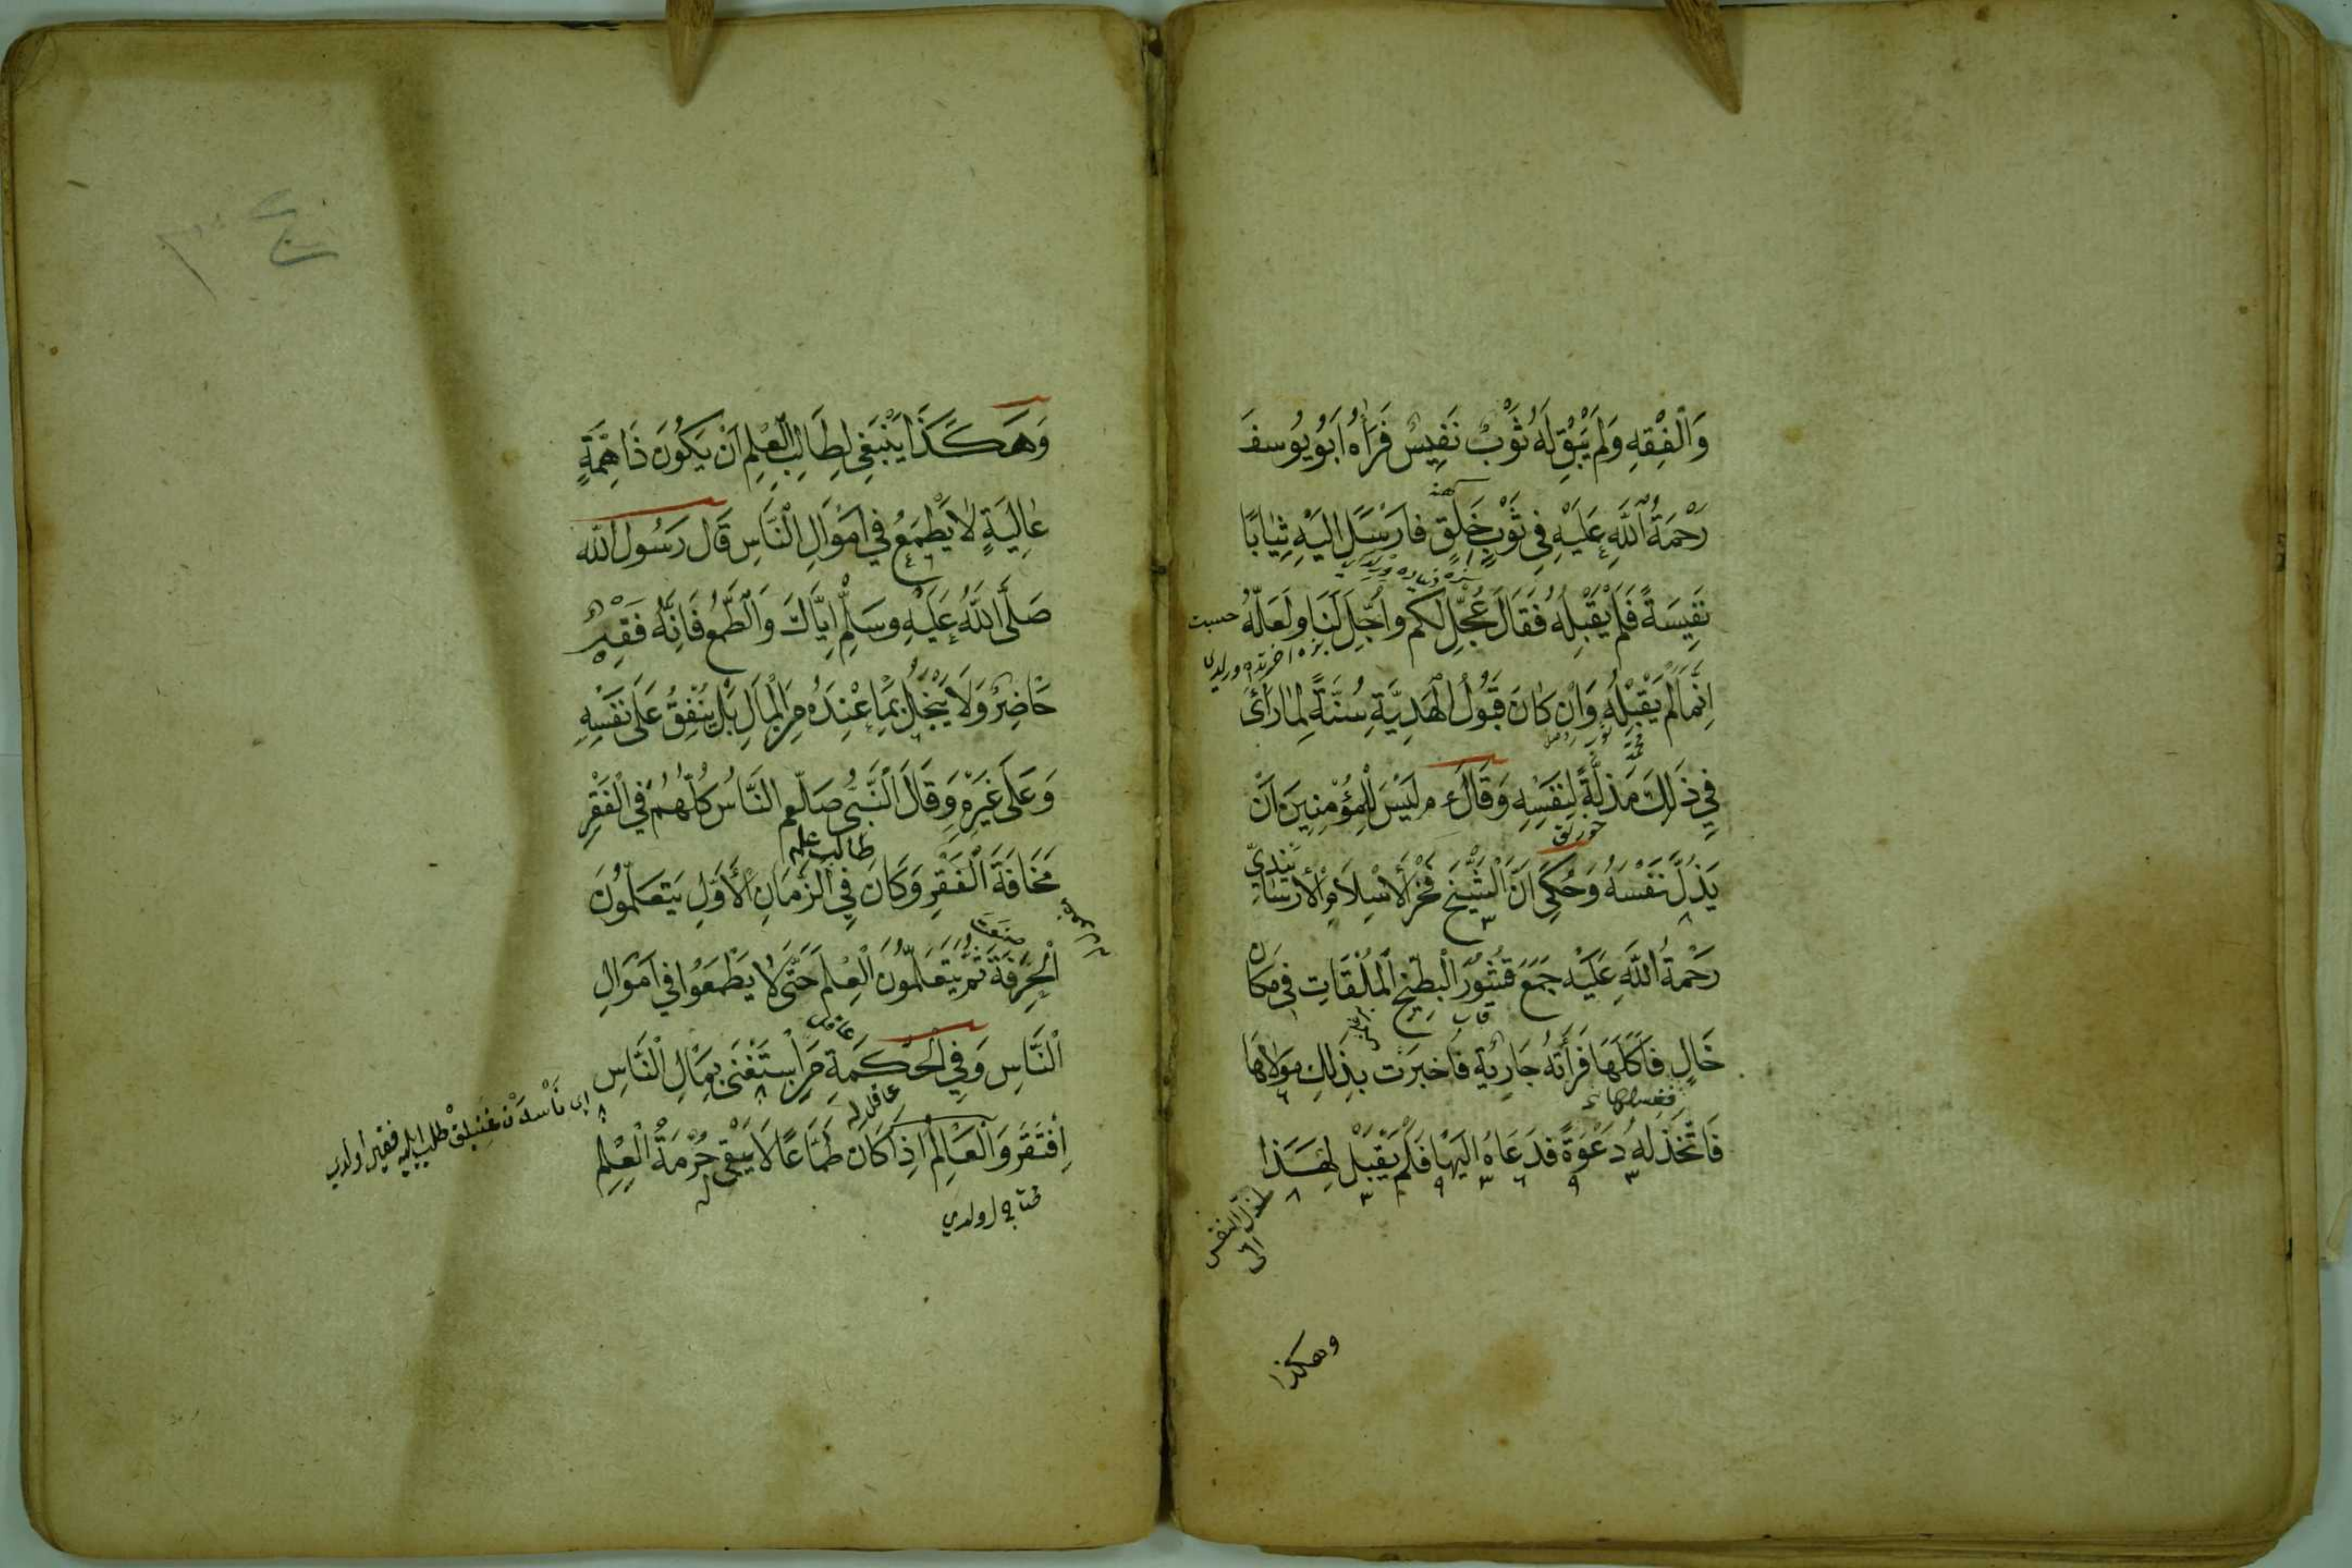 وَالْفِقْهِ وَلَمْ يَبْقَ لَهُ ثَوْبٌ نَفِيسٌ فَرَاٰهُ اَبُو يُوسفَ
رَحْمَةُ اللّٰهِ عَلَيْهِ فِي ثَوْبٍ خَلَقٍ فَارْسَلَ اِلَيْهِ ثِيَابًا
نَفِيسَةً فَلَمْ يَقْبَلْهُ فَقَالَ عُجِّلَ لَكُم وَاُجِّلَ لَنَا وَلَعَلَّهُ
اِنَّمَا لَمْ يَقْبَلْهُ وَاِنْ كَانَ قَبُولُ الْهَدِيَّةِ سُنَّةً لِمَا رَأَى
فِي ذَلِكَ مَذَلَّةً لِنَفْسِهِ وَقَالَ ع م لَيْسَ لِلْمُؤْمِنِينَ اَنْ
يَذُلَّ نَفْسَهُ وَحُكِيَ اَنَّ الشَّيْخَ فَخْرَ الْاِسْلَامِ الْاَرْسَابَنْدِيّ
رَحْمَةُ اللّٰهِ عَلَيْهِ جَمَعَ قُشُورَ الْبِطِّيخِ الْمُلْقَاتِ فِي مَكَانٍ
خَالٍ فَاَكَلَهَا فَرَأَتْهُ جَارِيَةٌ فَاَخْبَرَتْ بِذٰلِكَ مَوْلَاهَا
فَاتَّخَذَ لَهُ دَعْوَةً فَدَعَاهُ اِلَيْهَا فَلَمْ يَقْبَلْ لِهَذَا
وهكذا
وَهَكَذَا يَنْبَغِي لِطَالِبِ الْعِلْمِ اَنْ يَكُونَ ذَا هِمَّةٍ
عَالِيَةٍ لَا يَطْمَعُ فِي اَمْوَالِ النَّاسِ قَالَ رَسُولُ اللّٰه
صَلَّى اللّٰهُ عَلَيْهِ وَسَلَّمَ اِيَّاكَ وَالطَّمَعَ فَاِنَّهُ فَقْرٌ
حَاضِرٌ وَلَا يَبْخَلُ بِمَا عِنْدَهُ مِنَ الْمَالِ بَلْ يُنْفِقُ عَلَى نَفْسِهِ
وَعَلَى غَيْرِهِ وَقَالَ النَّبِيُّ صلعم النَّاسُ كُلُّهُمْ فِي الْفَقْرِ
طالب علم
مَخَافَةَ الْفَقْرِ وَكَانَ فِي الزَّمَانِ الْاَوَّلِ يَتَعَلَّمُونَ
صنعة
الْحِرْفَةَ ثُمَّ يَتَعَلَّمُونَ الْعِلْمَ حَتَّى لَا يَطْمَعُوا فِي اَمْوَالِ
النَّاسِ وَفِي الْحِكْمَةِ مَنِ اسْتَغْنَى بِمَالِ النَّاسِ
اى ناسدن غنيلق طلب ايليه فقير اولدى
اِفْتَقَرَ وَالْعَالِمُ اِذَا كَانَ طَمَّاعًا لَا يَبْقَى حُرْمَةُ الْعِلْمِ
اولدي